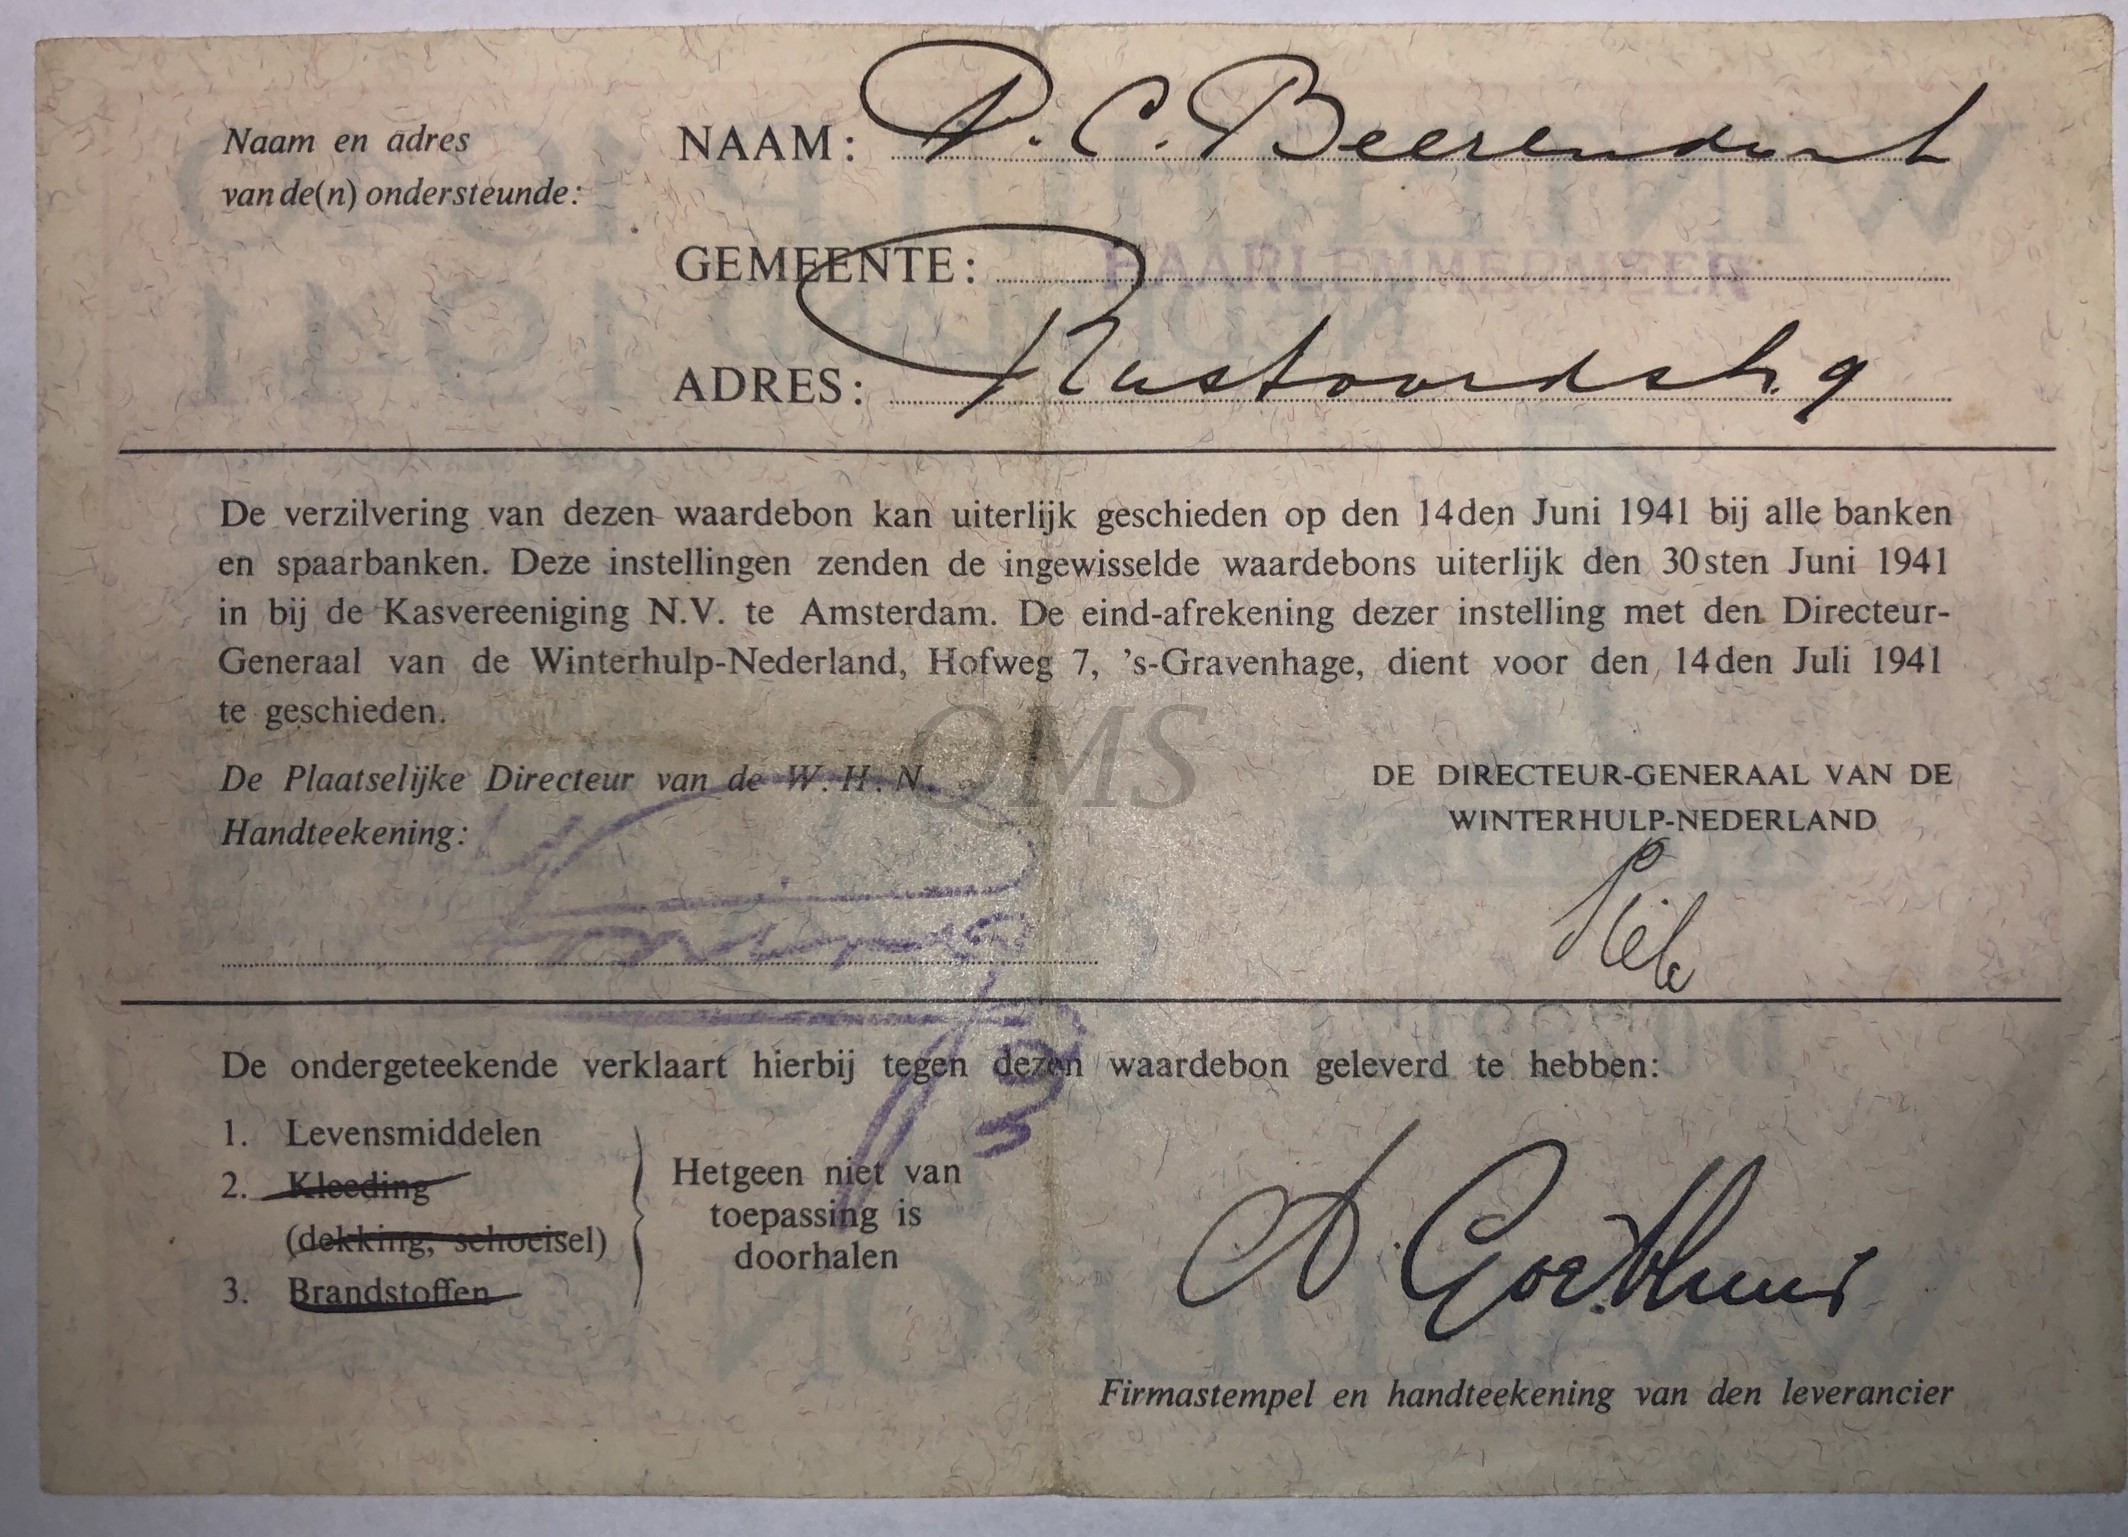 Naam en adres
van de(n) ondersteunde:
NAAM: P. C. Beerendonk
GEMEENTE: HAARLEMMERMEER
ADRES: Rustoordstr. 9
De verzilvering van dezen waardebon kan uiterlijk geschieden op den 14den Juni 1941 bij alle banken
en spaarbanken. Deze instellingen zenden de ingewisselde waardebons uiterlijk den 30sten Juni 1941
in bij de Kasvereeniging N.V. te Amsterdam. De eind-afrekening dezer instelling met den Directeur-
Generaal van de Winterhulp-Nederland, Hofweg 7, 's-Gravenhage, dient voor den 14den Juli 1941
te geschieden.
QMS
De Plaatselijke Directeur van de W. H. N.
Handteekening:
DE DIRECTEUR-GENERAAL VAN DE
WINTERHULP-NEDERLAND
De ondergeteekende verklaart hierbij tegen dezen waardebon geleverd te hebben:
1. Levensmiddelen
2. Kleeding
(dekking, schoeisel)
3. Brandstoffen
Hetgeen niet van
toepassing is
doorhalen
Firmastempel en handteekening van den leverancier